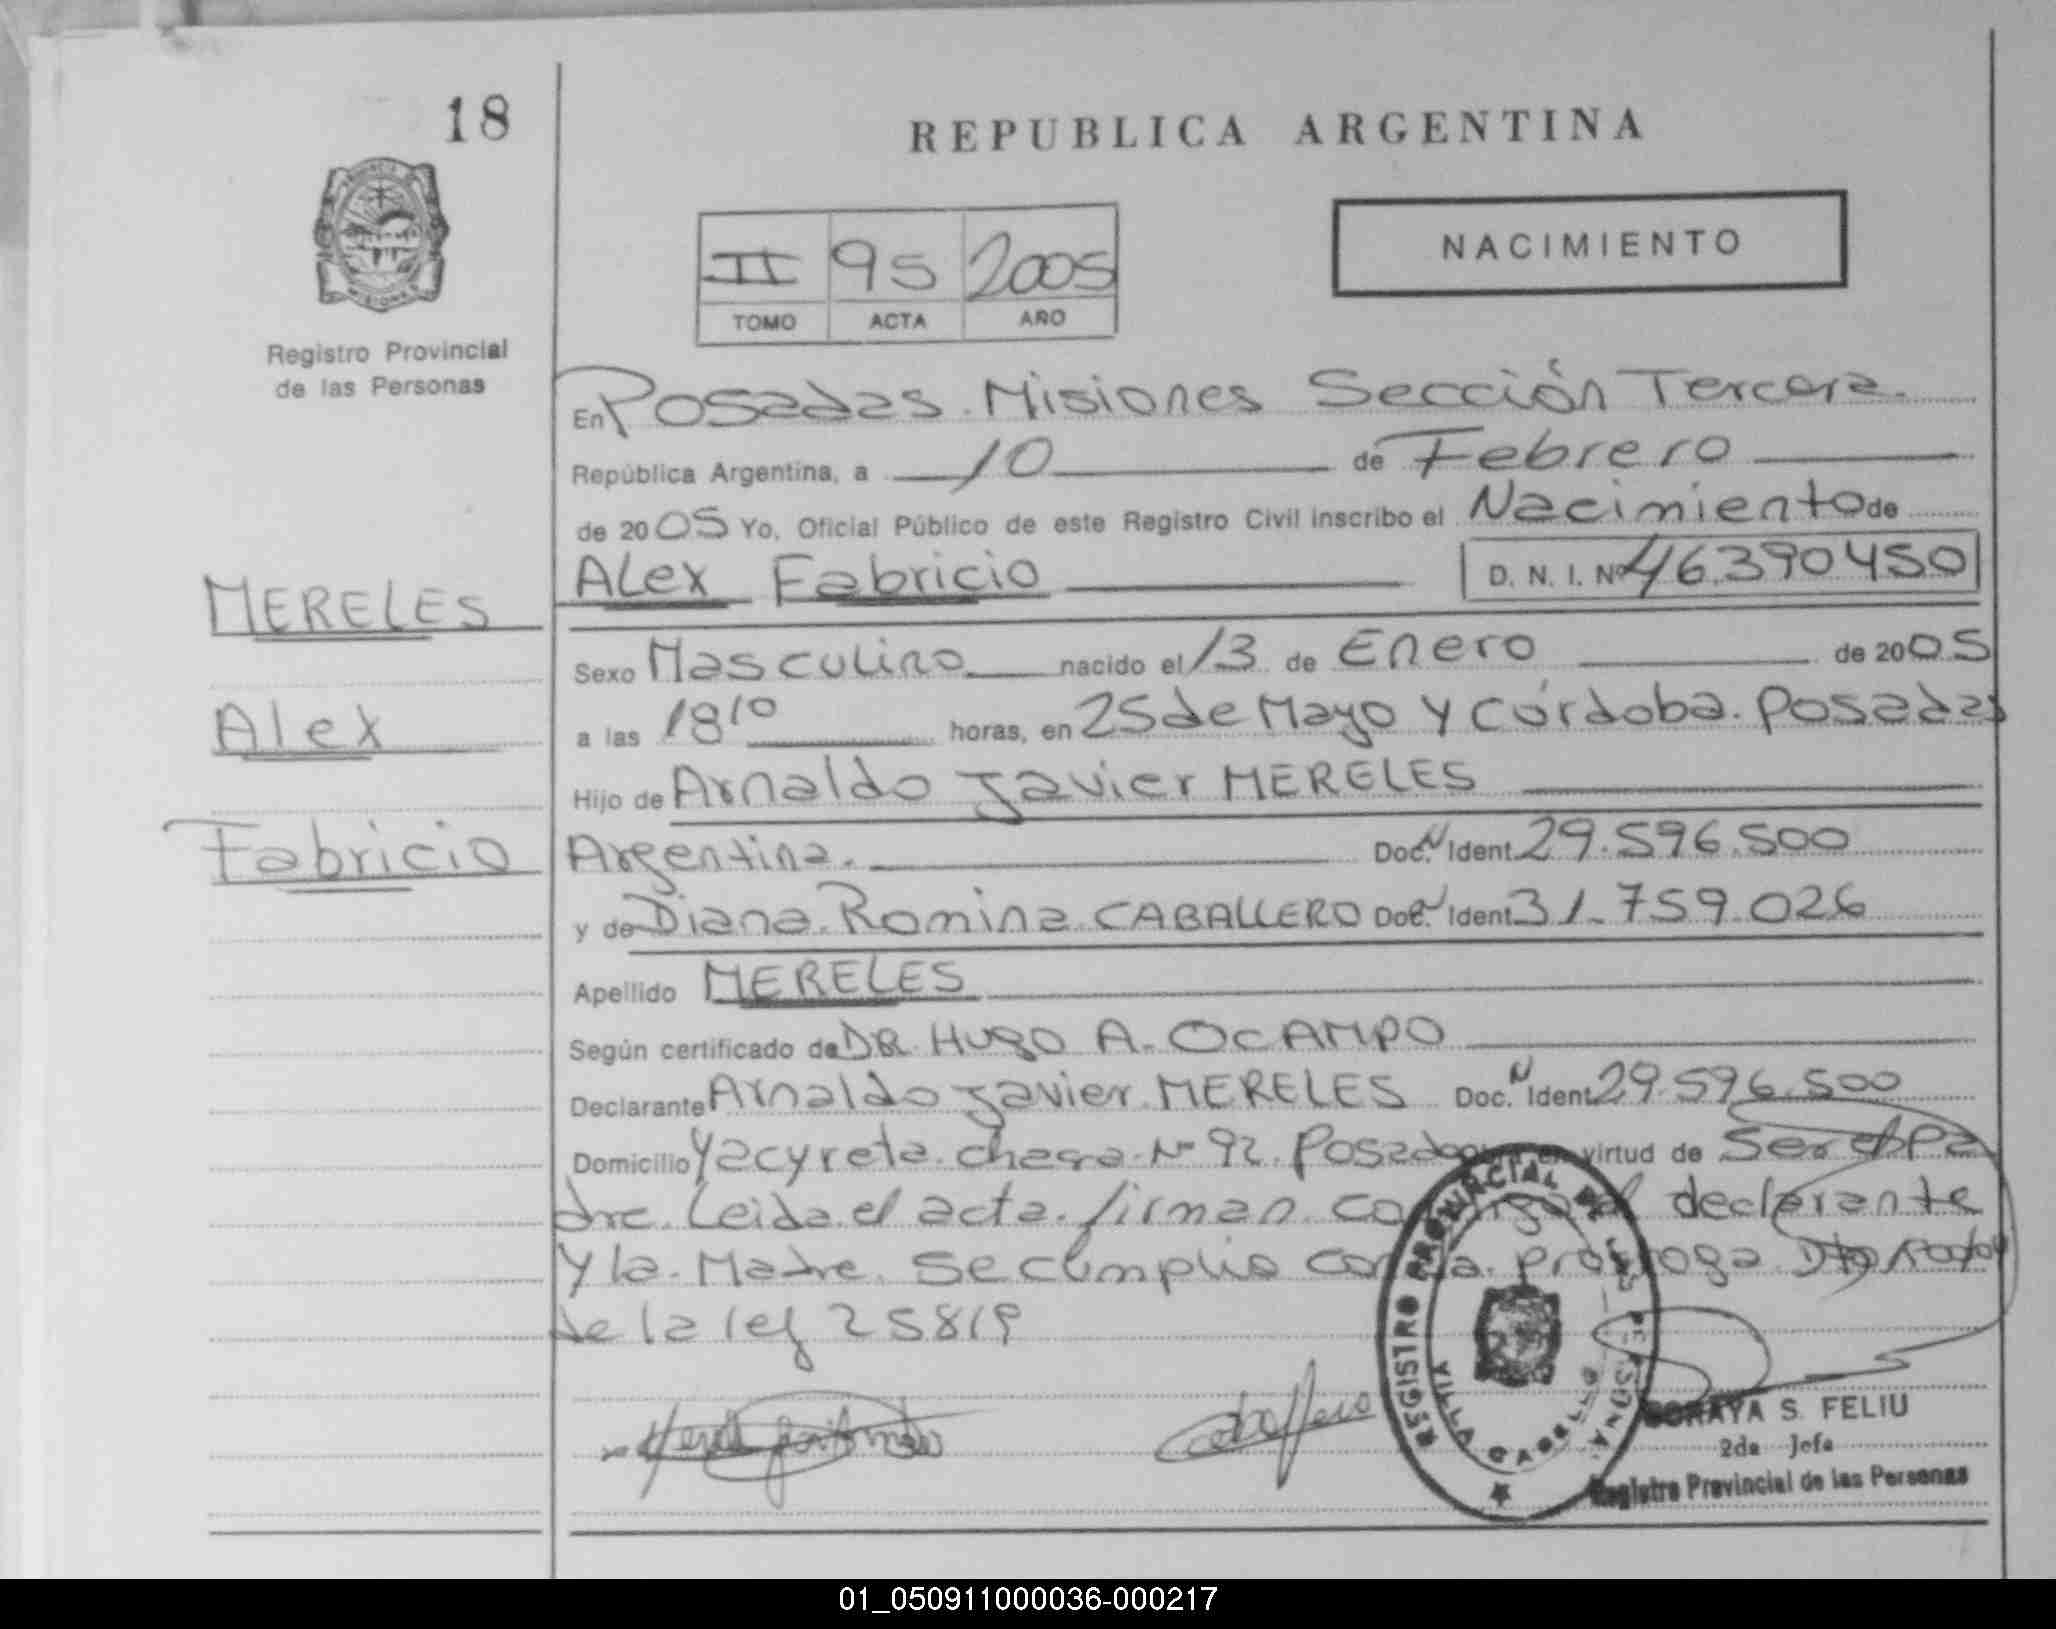 18
REPUBLICA ARGENTINA
II 95 2005
TOMO ACTA AÑO
NACIMIENTO
Registro Provincial
de las Personas
En Posadas. Misiones Sección Tercera.
República Argentina, a 10 de Febrero
de 2005 Yo, Oficial Público de este Registro Civil inscribo el Nacimiento de
Alex Fabricio D. N. I. Nº 46.390450
MERELES
Alex
Fabricio
Sexo Masculino nacido el 13 de Enero de 2005
a las 18 10 horas, en 25 de Mayo y Córdoba. Posadas
Hijo de Arnaldo Javier MERELES
Argentina. Doc. N Ident. 29.596.500
y de Diana Romina CABALLERO Doc. N Ident. 31.759.026
Apellido MERELES
Según certificado de DR. HUGO A. OCAMPO
Declarante Arnaldo Javier MERELES Doc. N Ident. 29.596.500
Domicilio Yacyreta. chacra Nº 92. Posadas virtud de Ser el Pa
dre. Leida el acta. firman el declarante
y la Madre. Se cumplio con la prorroga
de la ley 25819
REGISTRO PROVINCIAL DE LAS PERSONAS
VILLA CABELLO
SORAYA S. FELIU
2da Jefa
Registro Provincial de las Personas
01_050911000036-000217